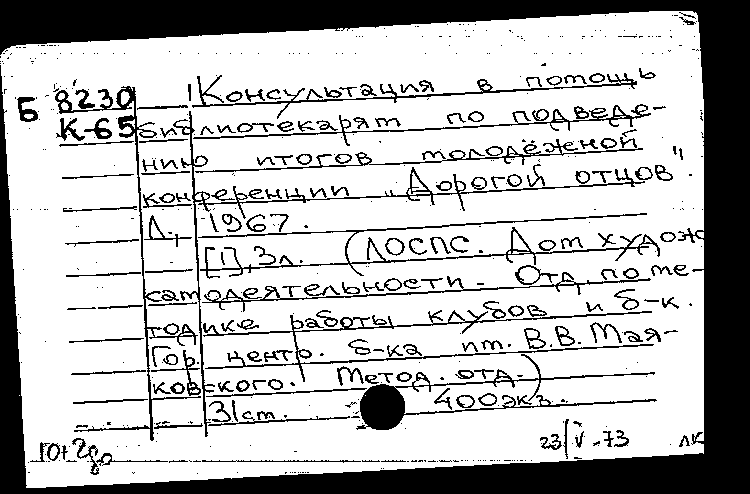 Б 8230 Консультация в помощь
К-65 библиотекарям по подведе-
нию итогов молодёжной
конференции „Дорогой отцов".
Л., 1967.
[1], 3л. (ЛОСПС. Дом худож
самодеятельности. Отд. по ме-
тодике работы клубов и б-к.
Гор. центр. б-ка им. В.В. Мая-
ковского. Метод. отд.)
31см. 400экз.
23/V-73 ЛК